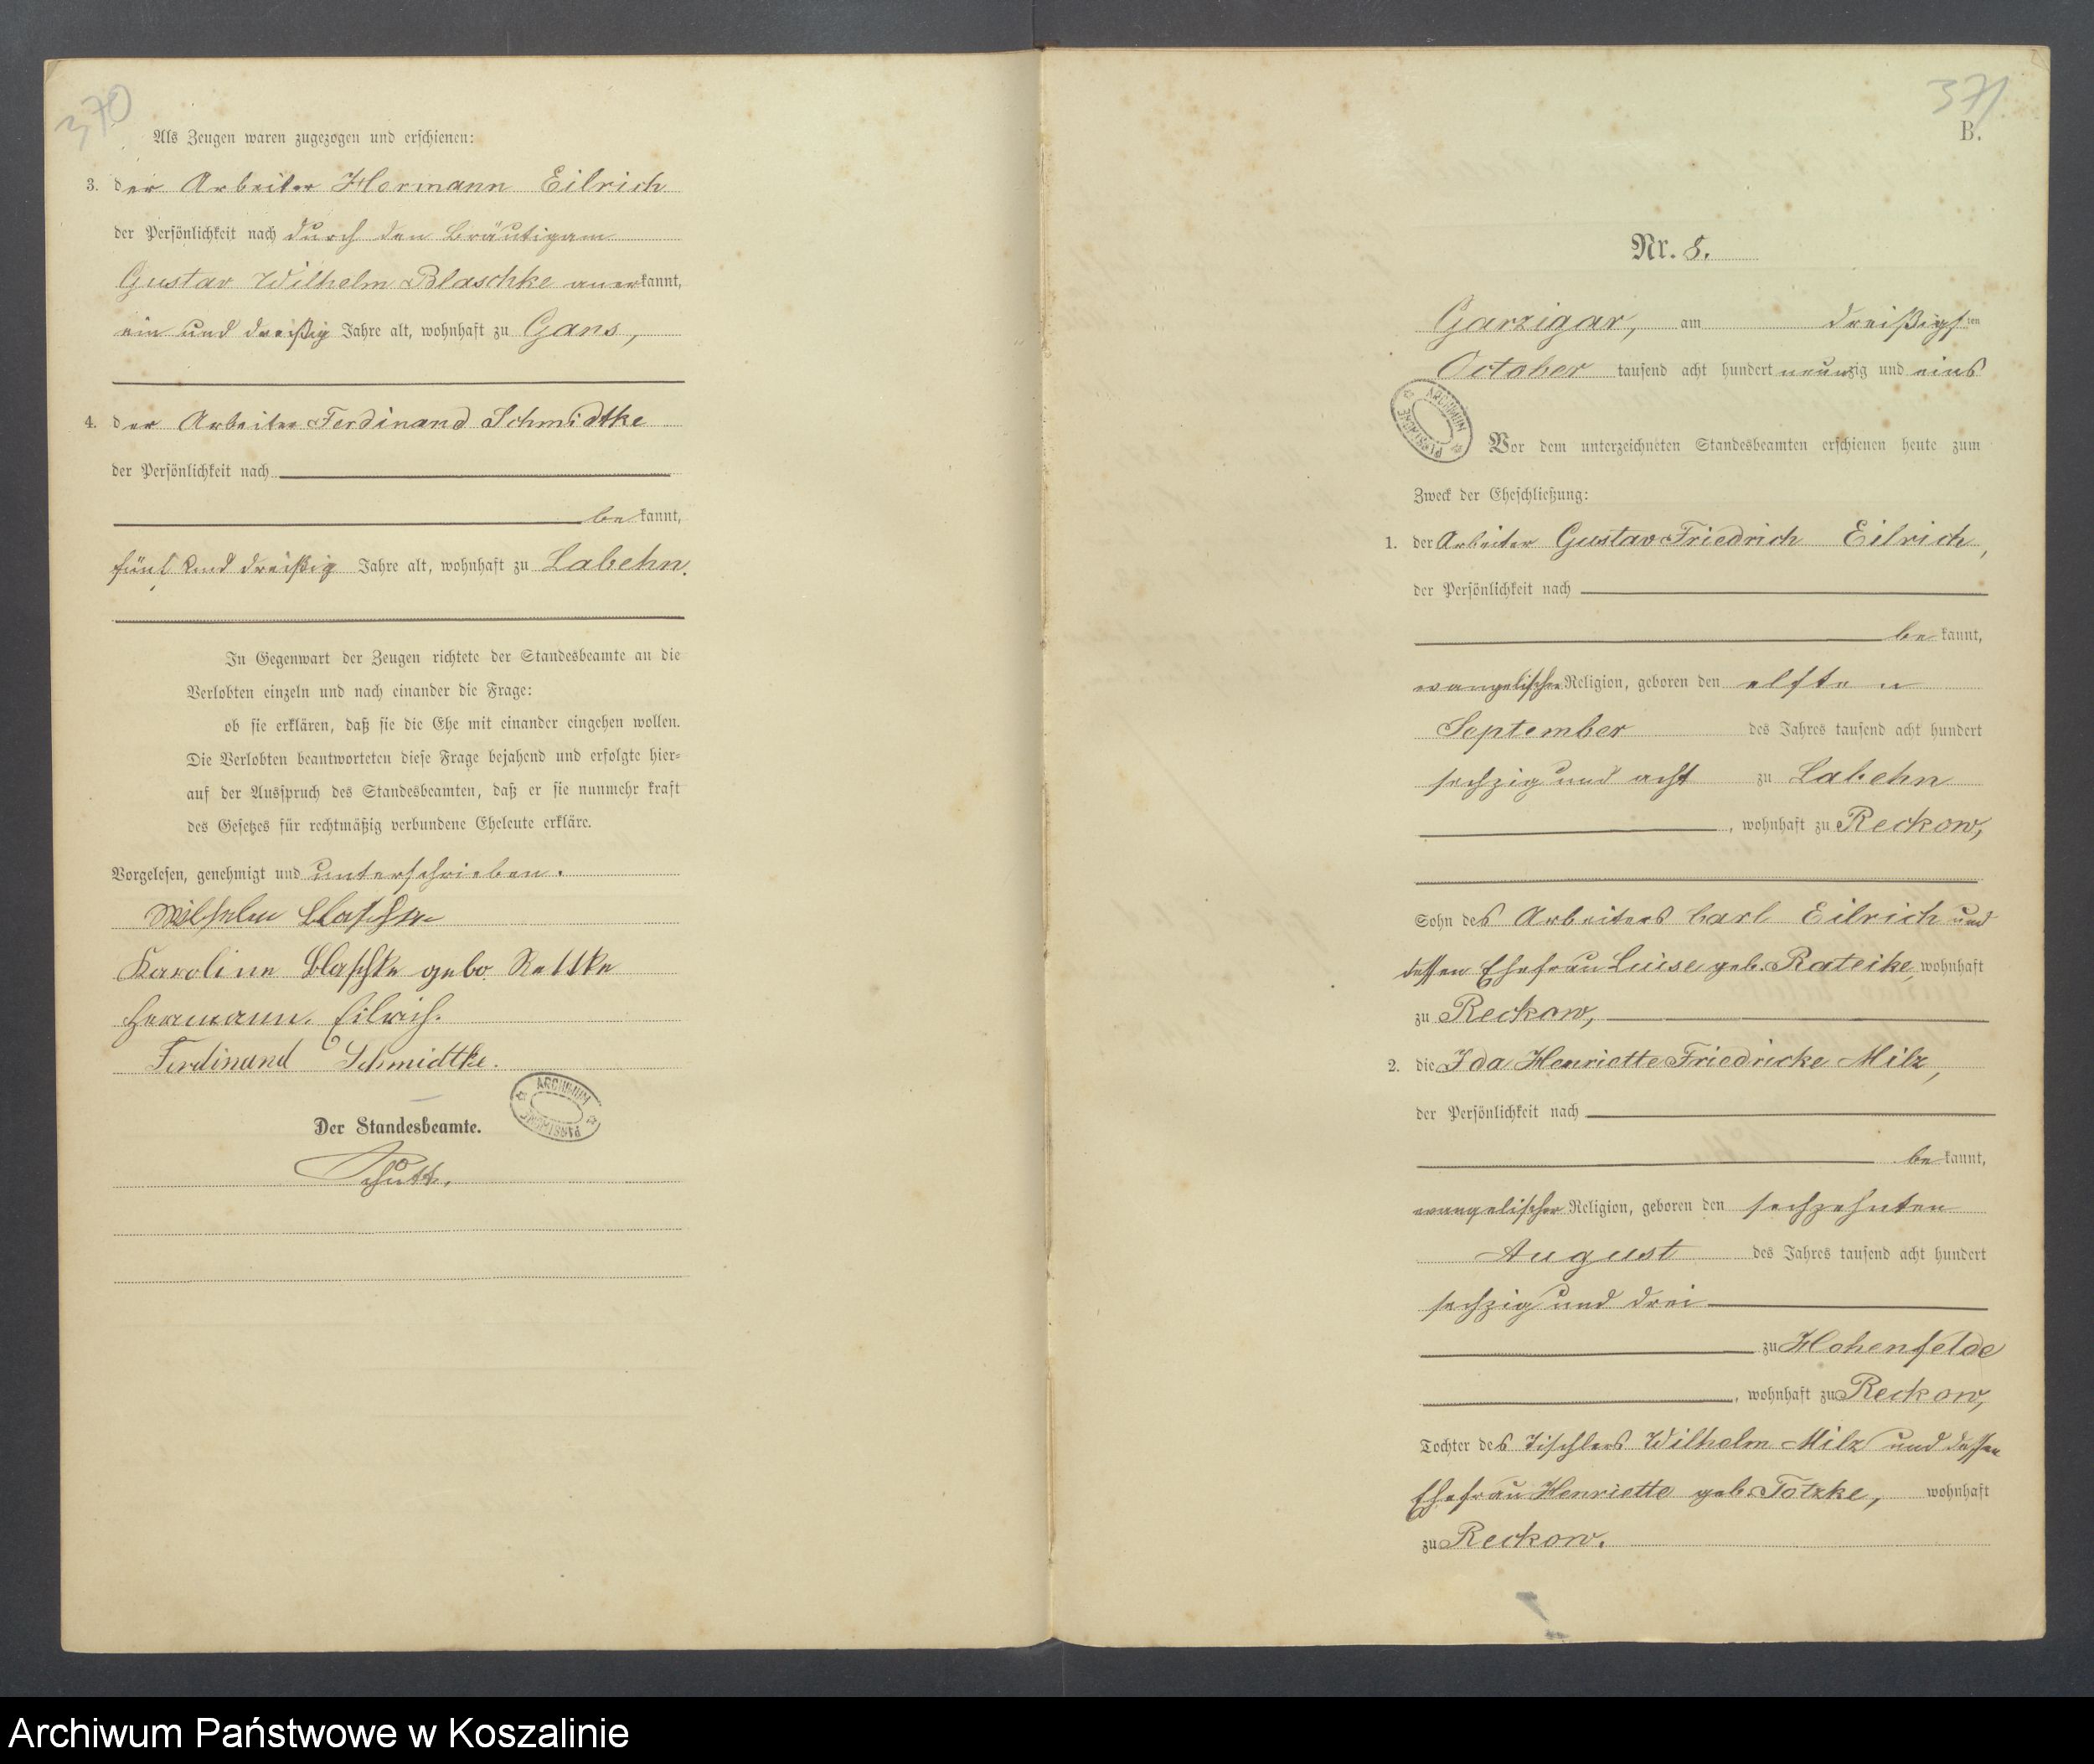 370
Als Zeugen waren zugezogen und erschienen:
3. der Arbeiter Hermann Eilrich
der Persönlichkeit nach durch den Bräutigam
Gustav Wilhelm Blaschke anerkannt,
ein und dreißig Jahre alt, wohnhaft zu Gans,
4. der Arbeiter Ferdinand Schmidtke
der Persönlichkeit nach
bekannt,
fünf und dreißig Jahre alt, wohnhaft zu Labehn.
In Gegenwart der Zeugen richtete der Standesbeamte an die
Verlobten einzeln und nach einander die Frage:
ob sie erklären, daß sie die Ehe mit einander eingehen wollen.
Die Verlobten beantworteten diese Frage bejahend und erfolgte hier-
auf der Ausspruch des Standesbeamten, daß er sie nunmehr kraft
des Gesetzes für rechtmäßig verbundene Eheleute erkläre.
Vorgelesen, genehmigt und unterschrieben.
Wilhelm Blaschke
Karoline Blaschke gebo
Hermann Eilrich.
Ferdinand Schmidtke.
ARCHIWUM PAŃSTWOWE
Der Standesbeamte.
371
B.
Nr. 8.
Garzigar, am dreißigsten
October tausend acht hundert neunzig und eins
ARCHIWUM PAŃSTWOWE
Vor dem unterzeichneten Standesbeamten erschienen heute zum
Zweck der Eheschließung:
1. der Arbeiter Gustav Friedrich Eilrich,
der Persönlichkeit nach
bekannt,
evangelischer Religion, geboren den elften
September des Jahres tausend acht hundert
sechzig und acht zu Labehn
, wohnhaft zu Reckow,
Sohn des Arbeiters Carl Eilrich und
dessen Ehefrau Luise geb. Rateike, wohnhaft
zu Reckow,
2. die Ida Henriette Friedricke Milz,
der Persönlichkeit nach
bekannt,
evangelischer Religion, geboren den sechzehnten
August des Jahres tausend acht hundert
sechzig und drei
zu Hohenfelde
, wohnhaft zu Reckow,
Tochter des Tischlers Wilhelm Milz und dessen
Ehefrau Henriette geb. Totzke, wohnhaft
zu Reckow.
Archiwum Państwowe w Koszalinie